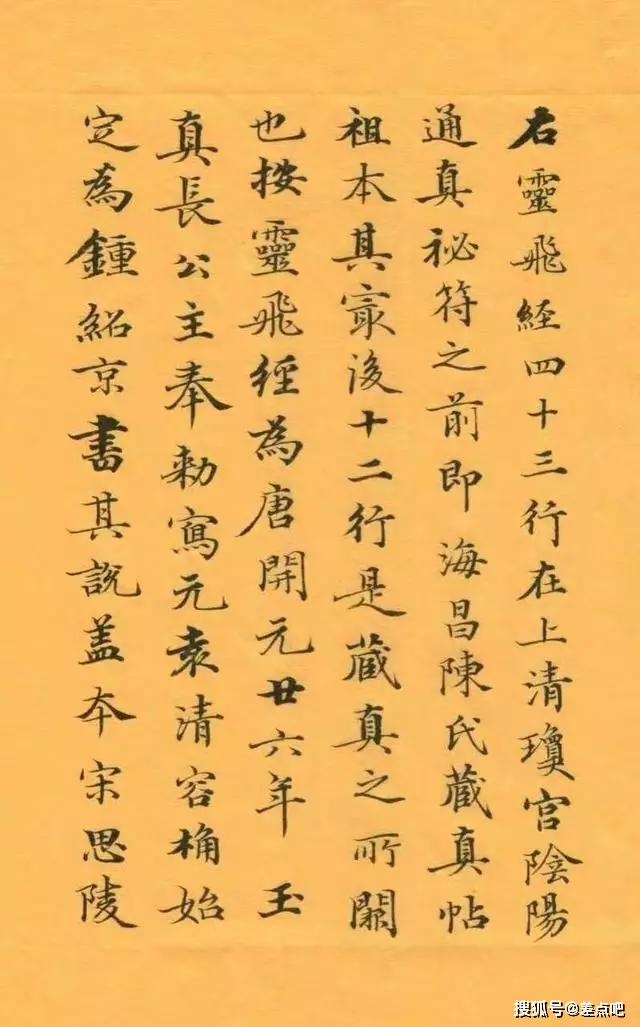 右靈飛経四十三行在上清瓊宮陰陽
通真祕符之前即海昌陳氏藏真帖
祖本其宼後十二行是蔵真之所闕
也按靈飛經為唐開元廿六年玉
真長公主奉勅寫元袁清容桷始
定為鍾紹京書其說盖本宋思陵
搜狐号@差点吧